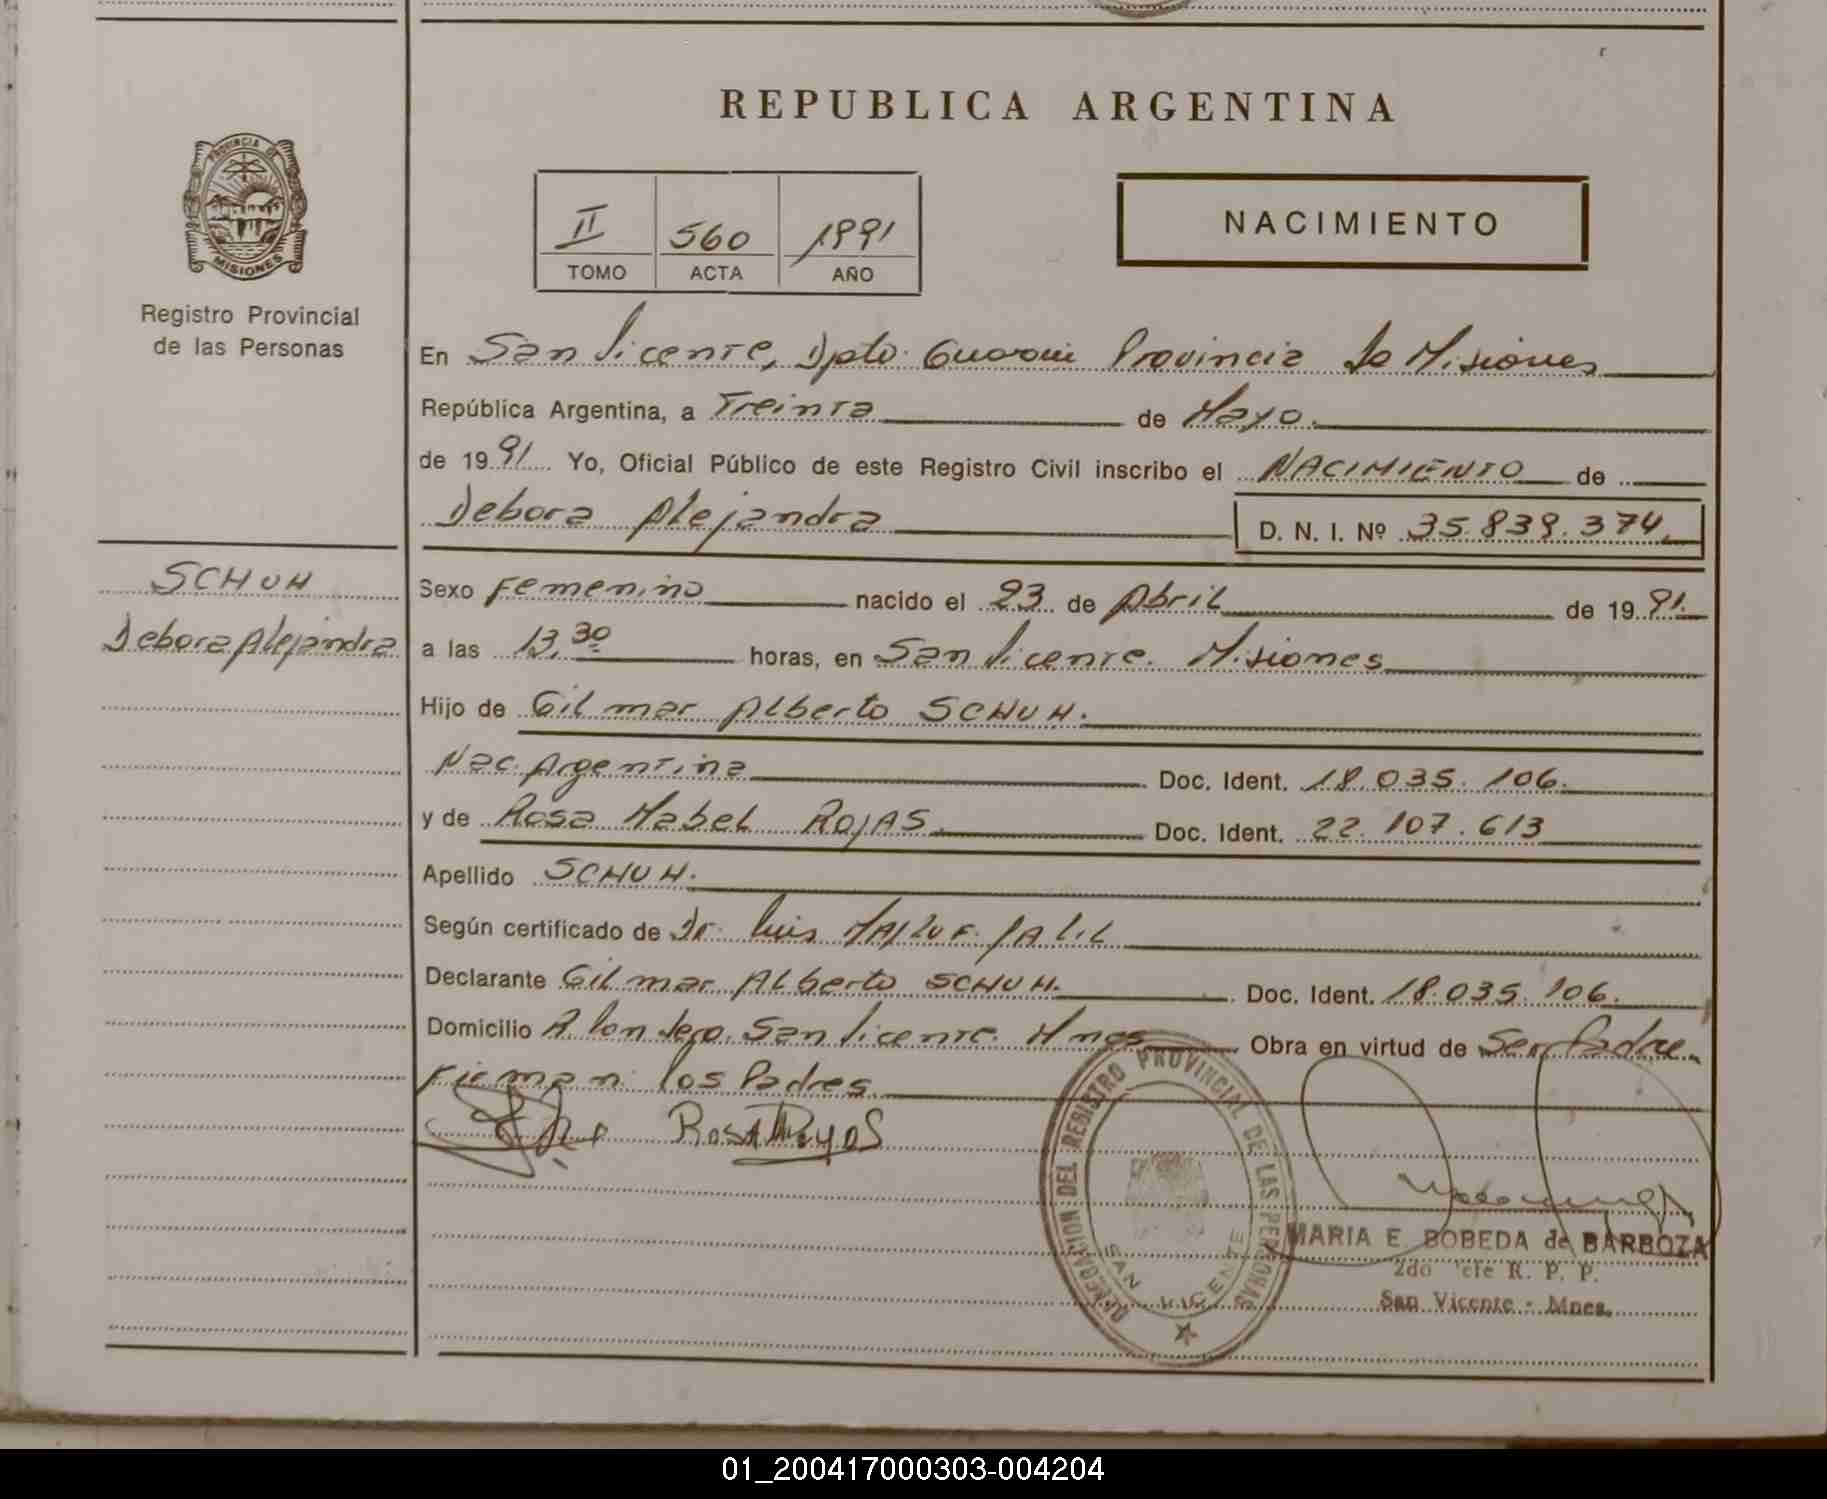 REPUBLICA ARGENTINA
PROVINCIA DE MISIONES
Registro Provincial
de las Personas
II 560 1991
TOMO ACTA AÑO
NACIMIENTO
En San Vicente, Dpto. Guarani Provincia de Misiones
República Argentina, a Treinta de Mayo.
de 19 91 Yo, Oficial Público de este Registro Civil inscribo el NACIMIENTO de
Debora Alejandra D. N. I. Nº 35.839.374.
SCHUH
Debora Alejandra
Sexo Femenino nacido el 23 de Abril de 19 91.
a las 13,30 horas, en San Vicente. Misiones
Hijo de Gilmar Alberto SCHUH.
Nac. Argentina Doc. Ident. 18.035.106.
y de Rosa Mabel ROJAS Doc. Ident. 22.107.613
Apellido SCHUH.
Según certificado de Dr. Luis JALIL
Declarante Gilmar Alberto SCHUH. Doc. Ident. 18.035.106.
Domicilio San Vicente. Mnes Obra en virtud de Ser Padre
Firman los Padres
Rosa
DELEGACION DEL REGISTRO PROVINCIAL DE LAS PERSONAS
SAN VICENTE
MARIA E. BOBEDA de BARBOZA
2do R. P. P.
San Vicente - Mnes.
01_200417000303-004204